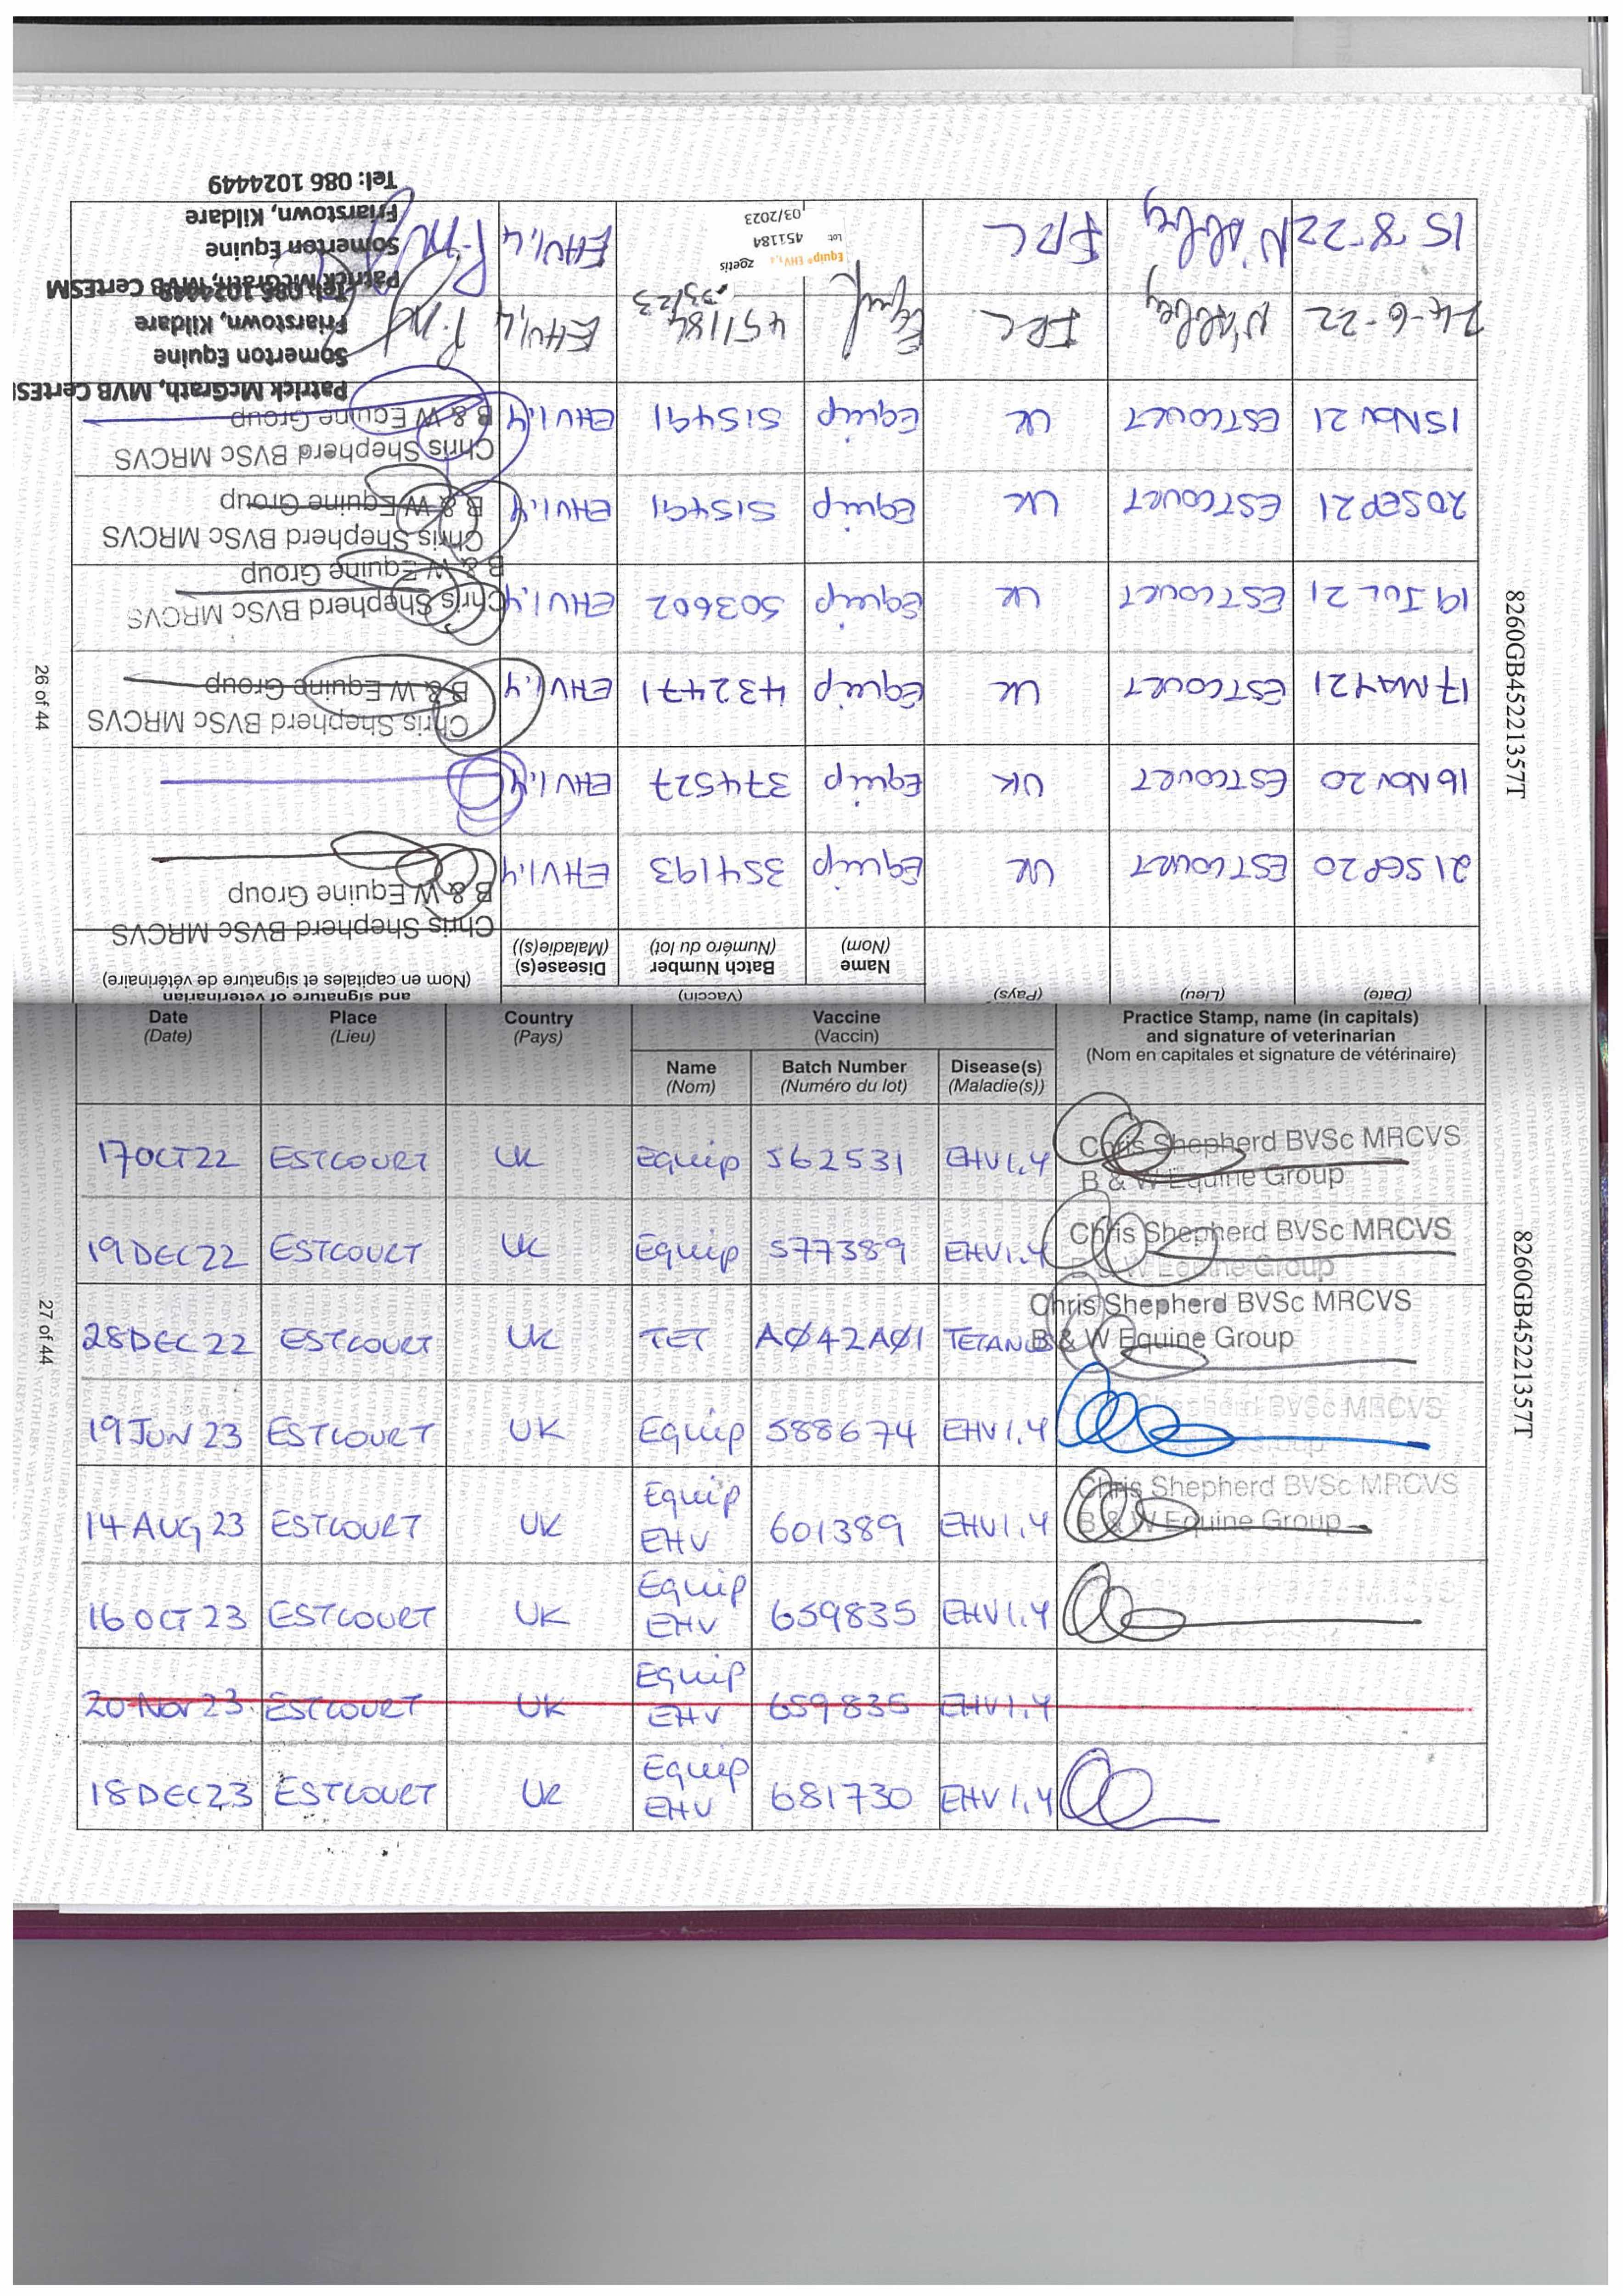 8260GB45221357T
26 of 44
(Date) (Lieu) (Pays) (Vaccin) and signature of veterinarian
(Nom en capitales et signature de vétérinaire)
Name Batch Number Disease(s)
(Nom) (Numéro du lot) (Maladie(s))
21 SEP 20 ESTCOURT UK Equip 354193 EHV1,4 Chris Shepherd BVSc MRCVS
B & W Equine Group
16 NOV 20 ESTCOURT UK Equip 374527 EHV1,4
17 MAY 21 ESTCOURT UK Equip 432471 EHV1,4 Chris Shepherd BVSc MRCVS
B & W Equine Group
19 JUL 21 ESTCOURT UK Equip 503602 EHV1,4 Chris Shepherd BVSc MRCVS
B & W Equine Group
20 SEP 21 ESTCOURT UK Equip 515491 EHV1,4 Chris Shepherd BVSc MRCVS
B & W Equine Group
15 NOV 21 ESTCOURT UK Equip 515491 EHV1,4 Chris Shepherd BVSc MRCVS
B & W Equine Group
24-6-22 IRL Equip 451184 03/23 EHV1,4 Patrick McGrath, MVB CertESM
Somerton Equine
Friarstown, Kildare
Tel: 086 1024449
15-8-22 IRL Equip® EHV 1,4 zoetis EHV1,4 Patrick McGrath, MVB CertESM
Lot 451184 Somerton Equine
03/2023 Friarstown, Kildare
Tel: 086 1024449
8260GB45221357T
27 of 44
Date Place Country Vaccine Practice Stamp, name (in capitals)
(Date) (Lieu) (Pays) (Vaccin) and signature of veterinarian
(Nom en capitales et signature de vétérinaire)
Name Batch Number Disease(s)
(Nom) (Numéro du lot) (Maladie(s))
17 OCT 22 ESTCOURT UK Equip 562531 EHV1,4 Chris Shepherd BVSc MRCVS
B & W Equine Group
19 DEC 22 ESTCOURT UK Equip 577389 EHV1,4 Chris Shepherd BVSc MRCVS
B & W Equine Group
28 DEC 22 ESTCOURT UK TET AØ42AØ1 TETANUS Chris Shepherd BVSc MRCVS
B & W Equine Group
19 JUN 23 ESTCOURT UK Equip 588674 EHV1,4 Shepherd BVSc MRCVS
Group
14 AUG 23 ESTCOURT UK Equip EHV 601389 EHV1,4 Chris Shepherd BVSc MRCVS
B & W Equine Group
16 OCT 23 ESTCOURT UK Equip EHV 659835 EHV1,4
20 Nov 23 ESTCOURT UK Equip EHV 659835 EHV1,4
18 DEC 23 ESTCOURT UK Equip EHV 681730 EHV1,4